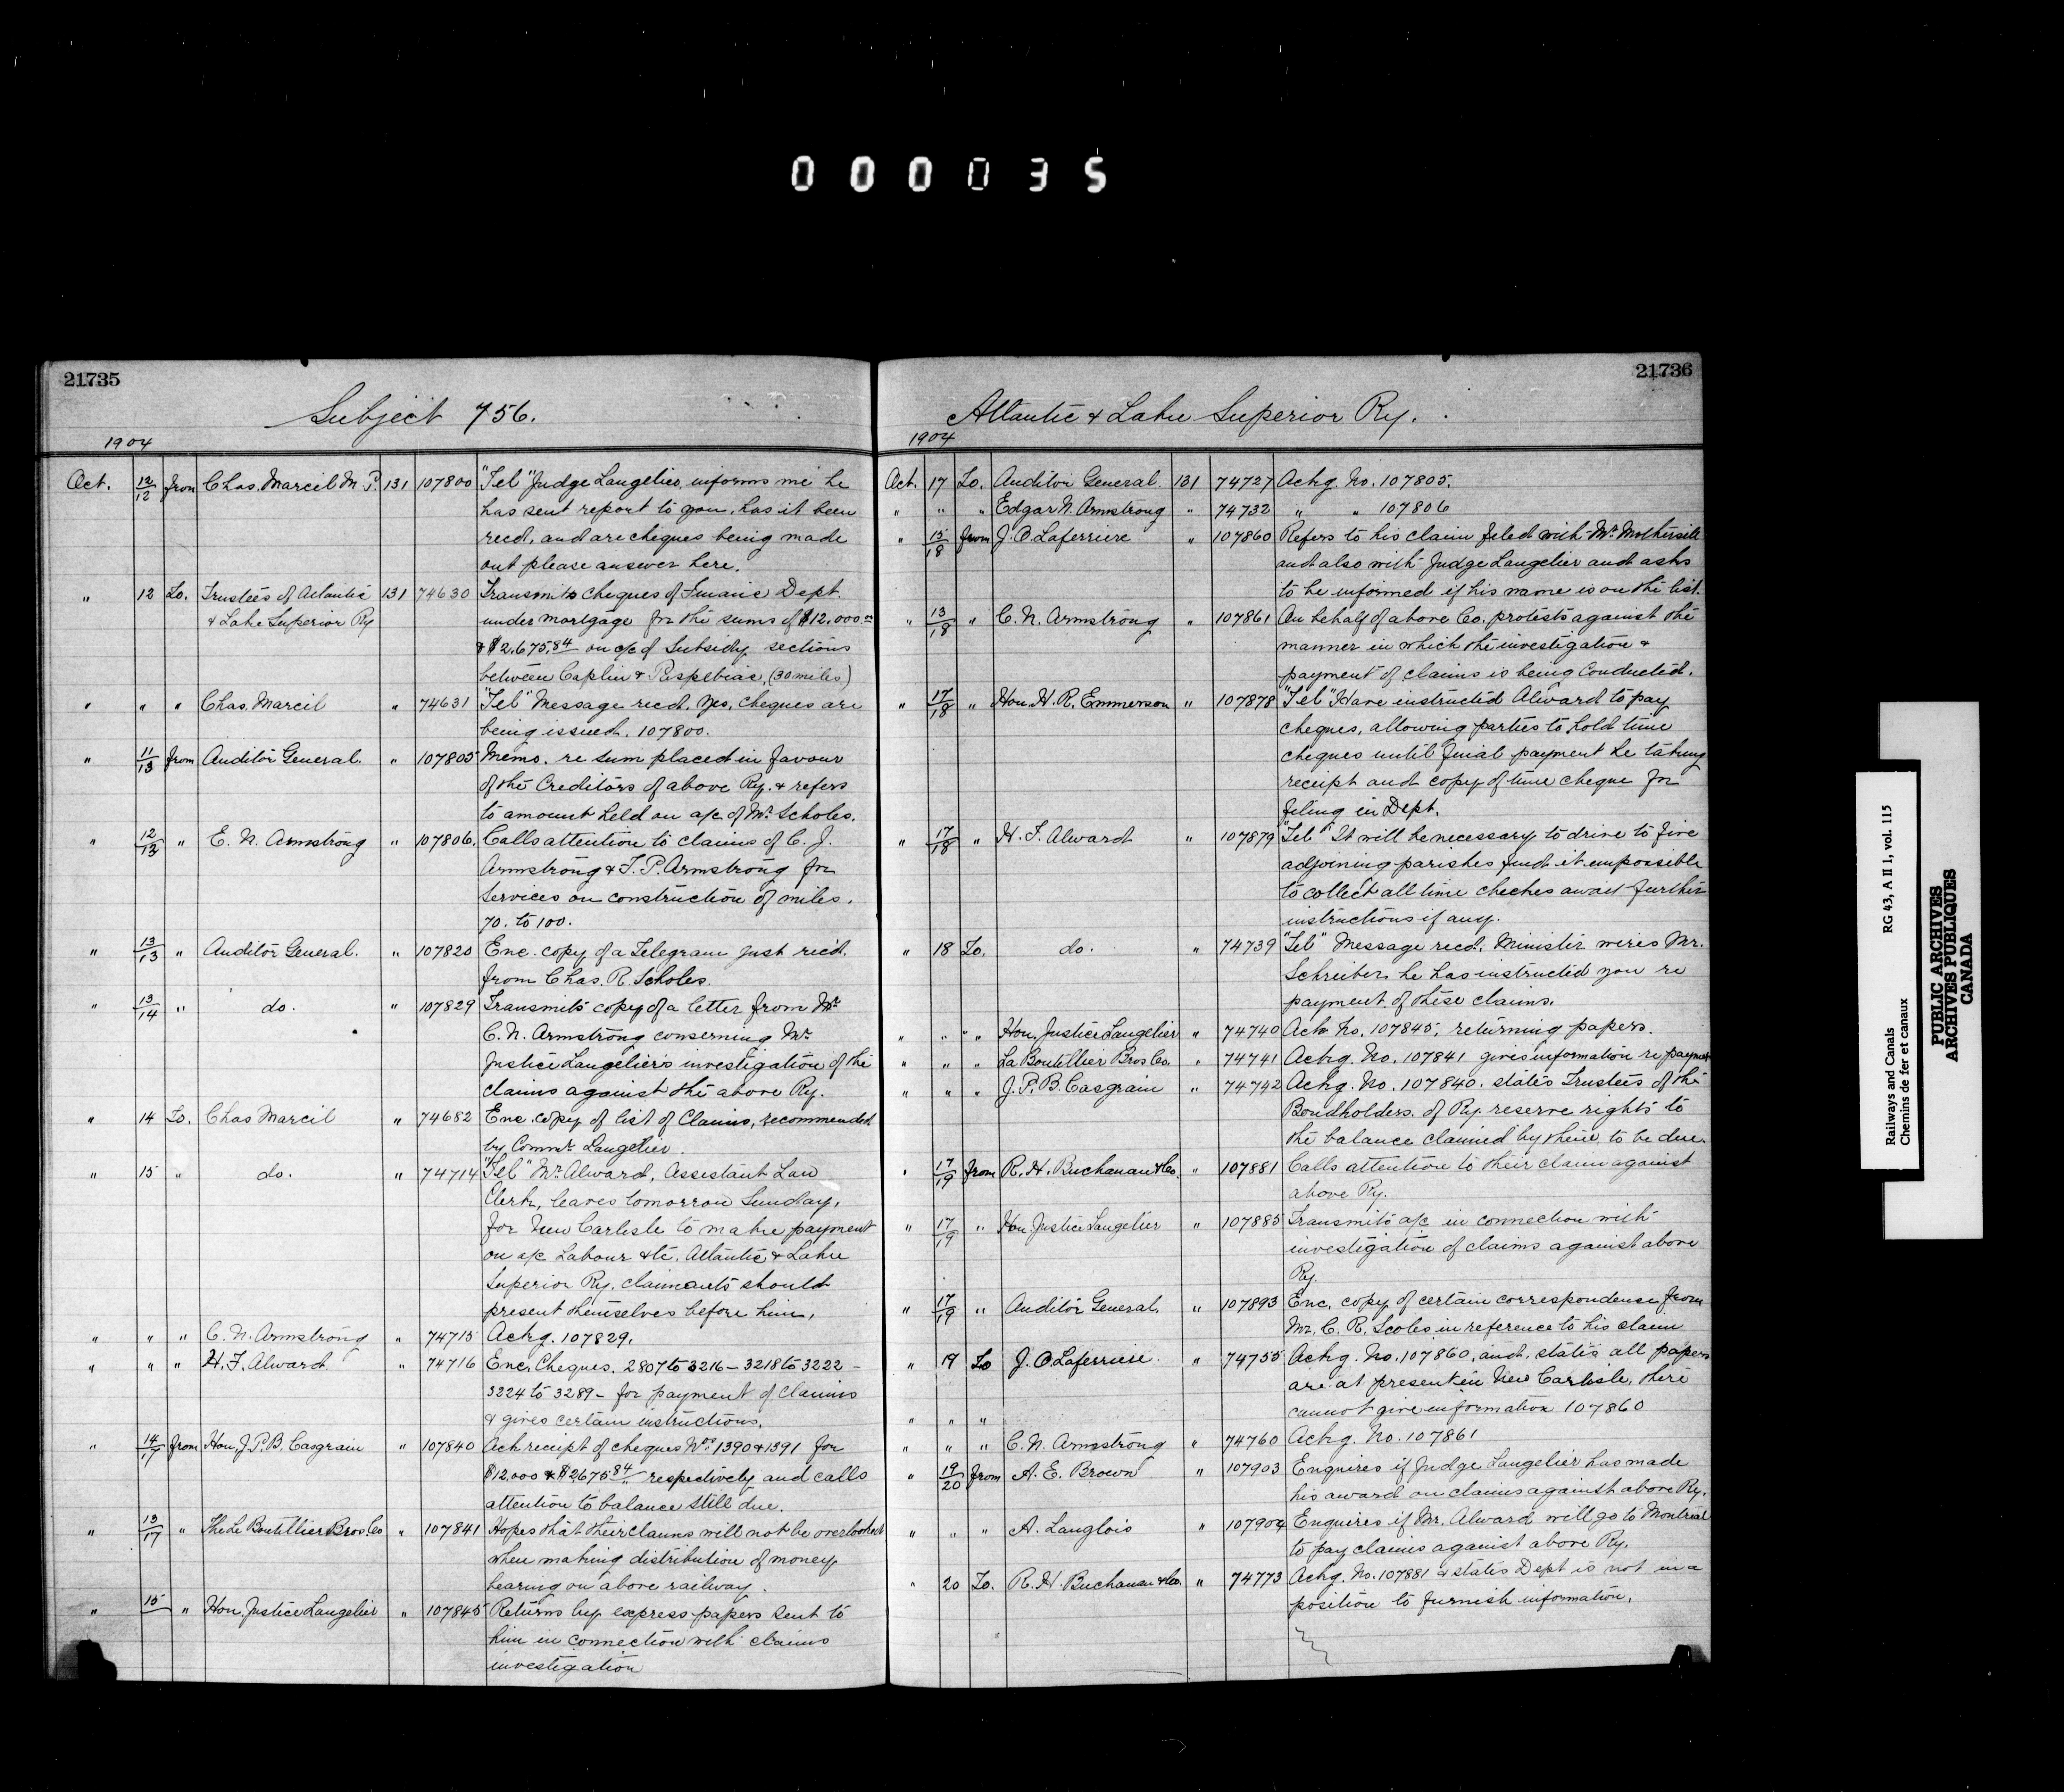 000035
21735
Subject 756.
1904
Oct. 12/12 from Chas. Marcil M.P. 131 107800 "Tel" Judge Langelier informs me he
has sent report to you, has it been
recd, and are cheques being made
out please answer here.
" 12 To. Trustees of Atlantic 131 74630 Transmits cheques of Finance Dept.
& Lake Superior Ry under mortgage for the sums of $12,000.00
& $2,675.84 on a/c of Subsidy sections
between Caplin & Paspebiac, (30 miles)
" " " Chas. Marcil " 74631 "Tel" Message recd. Yes, cheques are
being issued. 107800.
" 11/13 from Auditor General. " 107805 Memo. re sum placed in favour
of the Creditors of above Ry. & refers
to amount held on a/c of Mr. Scholes.
" 12/13 " E. N. Armstrong " 107806. Calls attention to claims of C. J.
Armstrong & T. P. Armstrong for
Services on construction of miles.
70. to 100.
" 13/13 " Auditor General. " 107820 Enc. copy of a Telegram just rec'd.
from Chas. R. Scholes.
" 13/14 " do. " 107829 Transmits copy of a letter from Mr.
C. N. Armstrong conserning Mr.
Justice Langelier's investigation of the
claims against the above Ry.
" 14 To. Chas Marcil " 74682 Enc. copy of list of Claims, recommended
by Commr. Langelier.
" 15 " do. " 74714 "Tel" Mr. Alward, Assistant Law
Clerk, leaves tomorrow Sunday,
for New Carlisle to make payment
on a/c Labour &c. Atlantic & Lake
Superior Ry. claimants should
present themselves before him,
" " " C. N. Armstrong " 74715 Ackg. 107829.
" " " H. F. Alward " 74716 Enc. Cheques. 2807 to 3216 — 3218 to 3222 —
3224 to 3289 — for payment of claims
& gives certain instructions.
" 14/17 from Hon. J. P. B. Casgrain " 107840 Ack receipt of cheques Nos. 1390 & 1391 for
$12,000 & $2,675.84 respectively and calls
attention to balance still due.
" 13/17 " The Le Boutillier Bros. Co " 107841 Hopes that their claims will not be overlooked
when making distribution of money
bearing on above railway.
" 15 " Hon. Justice Langelier " 107845 Returns by express papers sent to
him in connection with claims
investigation
21736
Atlantic & Lake Superior Ry.
1904
Oct. 17 To. Auditor General. 131 74727 Ackg. No. 107805.
" " " Edgar N. Armstrong " 74732 " " 107806
" 15/18 from J. O. Laferriere " 107860 Refers to his claim filed with Mr. Mothersill
and also with Judge Langelier and asks
to be informed if his name is on the list.
" 13/18 " C. N. Armstrong " 107861 On behalf of above Co. protests against the
manner in which the investigation &
payment of claims is being conducted.
" 17/18 " Hon. H. R. Emmerson " 107878 "Tel" Have instructed Alward to pay
cheques, allowing parties to hold time
cheques until final payment he taking
receipt and copy of time cheque for
filing in Dept.
" 17/18 " H. F. Alward " 107879 "Tel" It will be necessary to drive to five
adjoining parishes find it impossible
to collect all time checkes await further
instructions if any.
" 18 To. do. " 74739 "Tel" Message recd. Minister wires Mr.
Schreiber he has instructed you re
payment of these claims.
" " " Hon. Justice Langelier " 74740 Ack No. 107845, returning papers.
" " " La Boutillier Bros Co. " 74741 Ackg. No. 107841 gives information re payment
" " " J. P. B. Casgrain " 74742 Ackg. No. 107840. states Trustees of the
Bondholders. of Ry. reserve rights to
the balance claimed by them to be due.
" 17/19 from R. H. Buchanan & Co. " 107881 Calls attention to their claim against
above Ry.
" 17/19 " Hon Justice Langelier " 107885 Transmits a/c in connection with
investigation of claims against above
Ry.
" 17/19 " Auditor General. " 107893 Enc. copy of certain correspondence from
Mr. C. R. Scoles in reference to his claim
" 19 To J. O. Laferriere. " 74755 Ackg. No. 107860, and. states all papers
are at present in New Carlisle, there
cannot give information 107860
" " "
" " " C. N. Armstrong " 74760 Ackg. No. 107861
" 19/20 from A. E. Brown " 107903 Enquires if Judge Langelier has made
his award on claims against above Ry.
" " " A. Langlois " 107904 Enquires if Mr. Alward will go to Montreal
to pay claims against above Ry.
" 20 To. R. H. Buchanan & Co. " 74773 Ackg. No. 107881 & states Dept is not in a
position to furnish information.
Railways and Canals RG 43, A II 1, vol. 115
Chemins de fer et canaux
PUBLIC ARCHIVES
ARCHIVES PUBLIQUES
CANADA